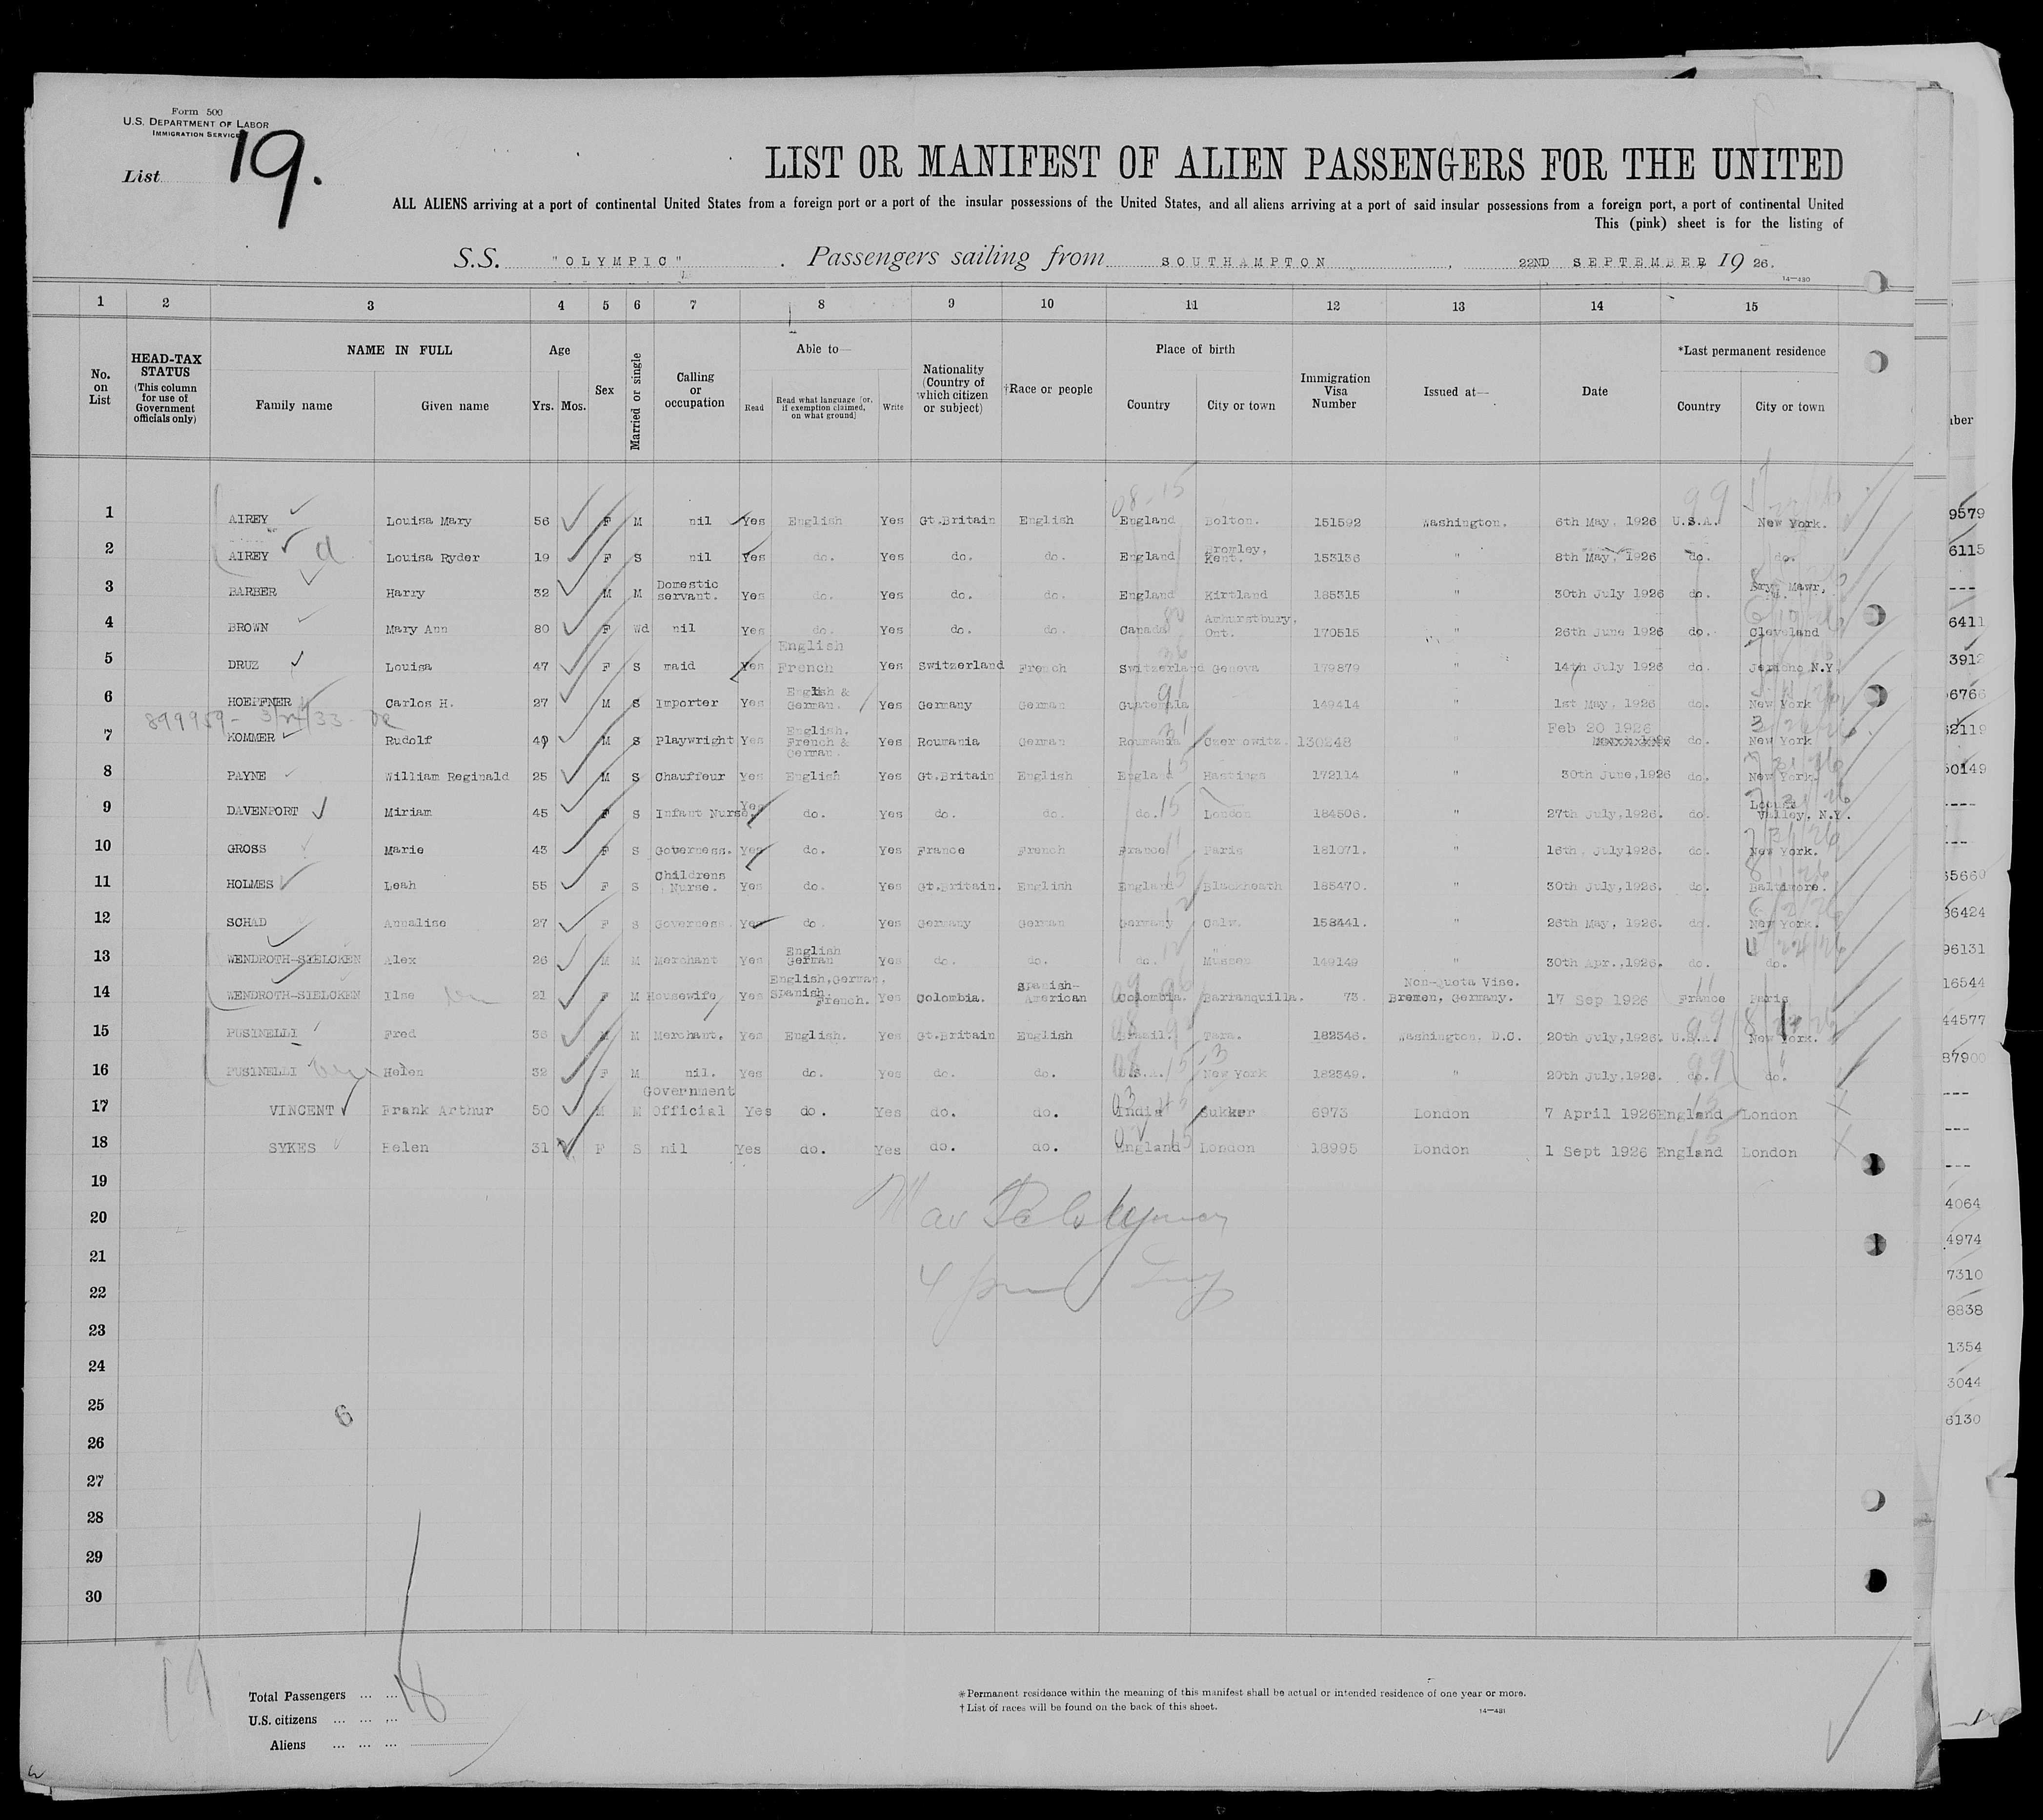 Form 500
U.S. DEPARTMENT OF LABOR
IMMIGRATION SERVICE
List 19.
LIST OR MANIFEST OF ALIEN PASSENGERS FOR THE UNITED
ALL ALIENS arriving at a port of continental United States from a foreign port or a port of the insular possessions of the United States, and all aliens arriving at a port of said insular possessions from a foreign port, a port of continental United
This (pink) sheet is for the listing of
S.S. "OLYMPIC" . Passengers sailing from SOUTHAMPTON , 22ND SEPTEMBER 19 26.
14—480
1 2 3 4 5 6 7 8 9 10 11 12 13 14 15
No. on List
HEAD-TAX STATUS (This column for use of Government officials only)
NAME IN FULL
Family name Given name
Age
Yrs. Mos.
Sex
Married or single
Calling or occupation
Able to—
Read Read what language [or, if exemption claimed, on what ground] Write
Nationality (Country of which citizen or subject)
†Race or people
Place of birth
Country City or town
Immigration Visa Number
Issued at—
Date
*Last permanent residence
Country City or town
1 AIREY Louisa Mary 56 F M nil Yes English Yes Gt.Britain English England Bolton. 151592 Washington. 6th May, 1926 U.S.A. New York.
2 AIREY Louisa Ryder 19 F S nil Yes do. Yes do. do. England Bromley, Kent. 153136 " 8th May, 1926 do. do.
3 BARBER Harry 32 M M Domestic servant. Yes do. Yes do. do. England Kirtland 185315 " 30th July 1926 do. Bryn Mawr,
4 BROWN Mary Ann 80 F Wd nil Yes do. Yes do. do. Canada Amhurstbury, Ont. 170515 " 26th June 1926 do. Cleveland
5 DRUZ Louisa 47 F S maid Yes English French Yes Switzerland French Switzerland Geneva 179879 " 14th July 1926 do. Jericho N.Y.
6 HOEPFNER Carlos H. 27 M S Importer Yes English & German. Yes Germany German Guatemala 149414 " 1st May, 1926 do. New York
899959- 3/ /33-
7 KOMMER Rudolf 40 M S Playwright Yes English, French & German. Yes Roumania German Roumania Czernowitz. 130248 " Feb 20 1926 do. New York
8 PAYNE William Reginald 25 M S Chauffeur Yes English Yes Gt.Britain English England Hastings 172114 " 30th June,1926 do. New York.
9 DAVENPORT Miriam 45 F S Infant Nurse. Yes do. Yes do. do. do. London 184506. " 27th July,1926. do. Locust Valley, N.Y.
10 GROSS Marie 43 F S Governess. Yes do. Yes France French France Paris 181071. " 16th July1926. do. New York.
11 HOLMES Leah 55 F S Childrens Nurse. Yes do. Yes Gt.Britain. English England Blackheath 185470. " 30th July,1926. do. Baltimore.
12 SCHAD Annalise 27 F S Governess. Yes do. Yes Germany German Germany Calw. 158441. " 26th May, 1926. do. New York.
13 WENDROTH-SIELCKEN Alex 26 M M Merchant Yes English German Yes do. do. do. 149149 " 30th Apr.,1926. do. do.
14 WENDROTH-SIELCKEN Ilse 21 F M Housewife Yes English,German, Spanish, French. Yes Colombia. Spanish-American Colombia. Barranquilla. 73. Non-Quota Vise. Bremen, Germany. 17 Sep 1926 France Paris
15 PUSINELLI Fred 36 M M Merchant. Yes English. Yes Gt.Britain English Brazil. Para. 182346. Washington, D.C. 20th July,1926. U.S.A. New York.
16 PUSINELLI Helen 32 F M nil. Yes do. Yes do. do. U.S.A. New York 182349. " 20th July,1926. do. do.
17 VINCENT Frank Arthur 50 M M Government Official Yes do. Yes do. do. India Sukker 6973 London 7 April 1926 England London
18 SYKES Helen 31 F S nil Yes do. Yes do. do. England London 18995 London 1 Sept 1926 England London
19
20
21
22
23
24
25
26
27
28
29
30
6
19
Total Passengers ... ... 18
U.S. citizens ... ... ...
Aliens ... ... ...
*Permanent residence within the meaning of this manifest shall be actual or intended residence of one year or more.
† List of races will be found on the back of this sheet.
14—481
9579
6115
---
6411
3912
6766
62119
50149
----
---
65660
36424
96131
16544
44577
87900
---
---
---
4064
4974
7310
8838
1354
3044
6130